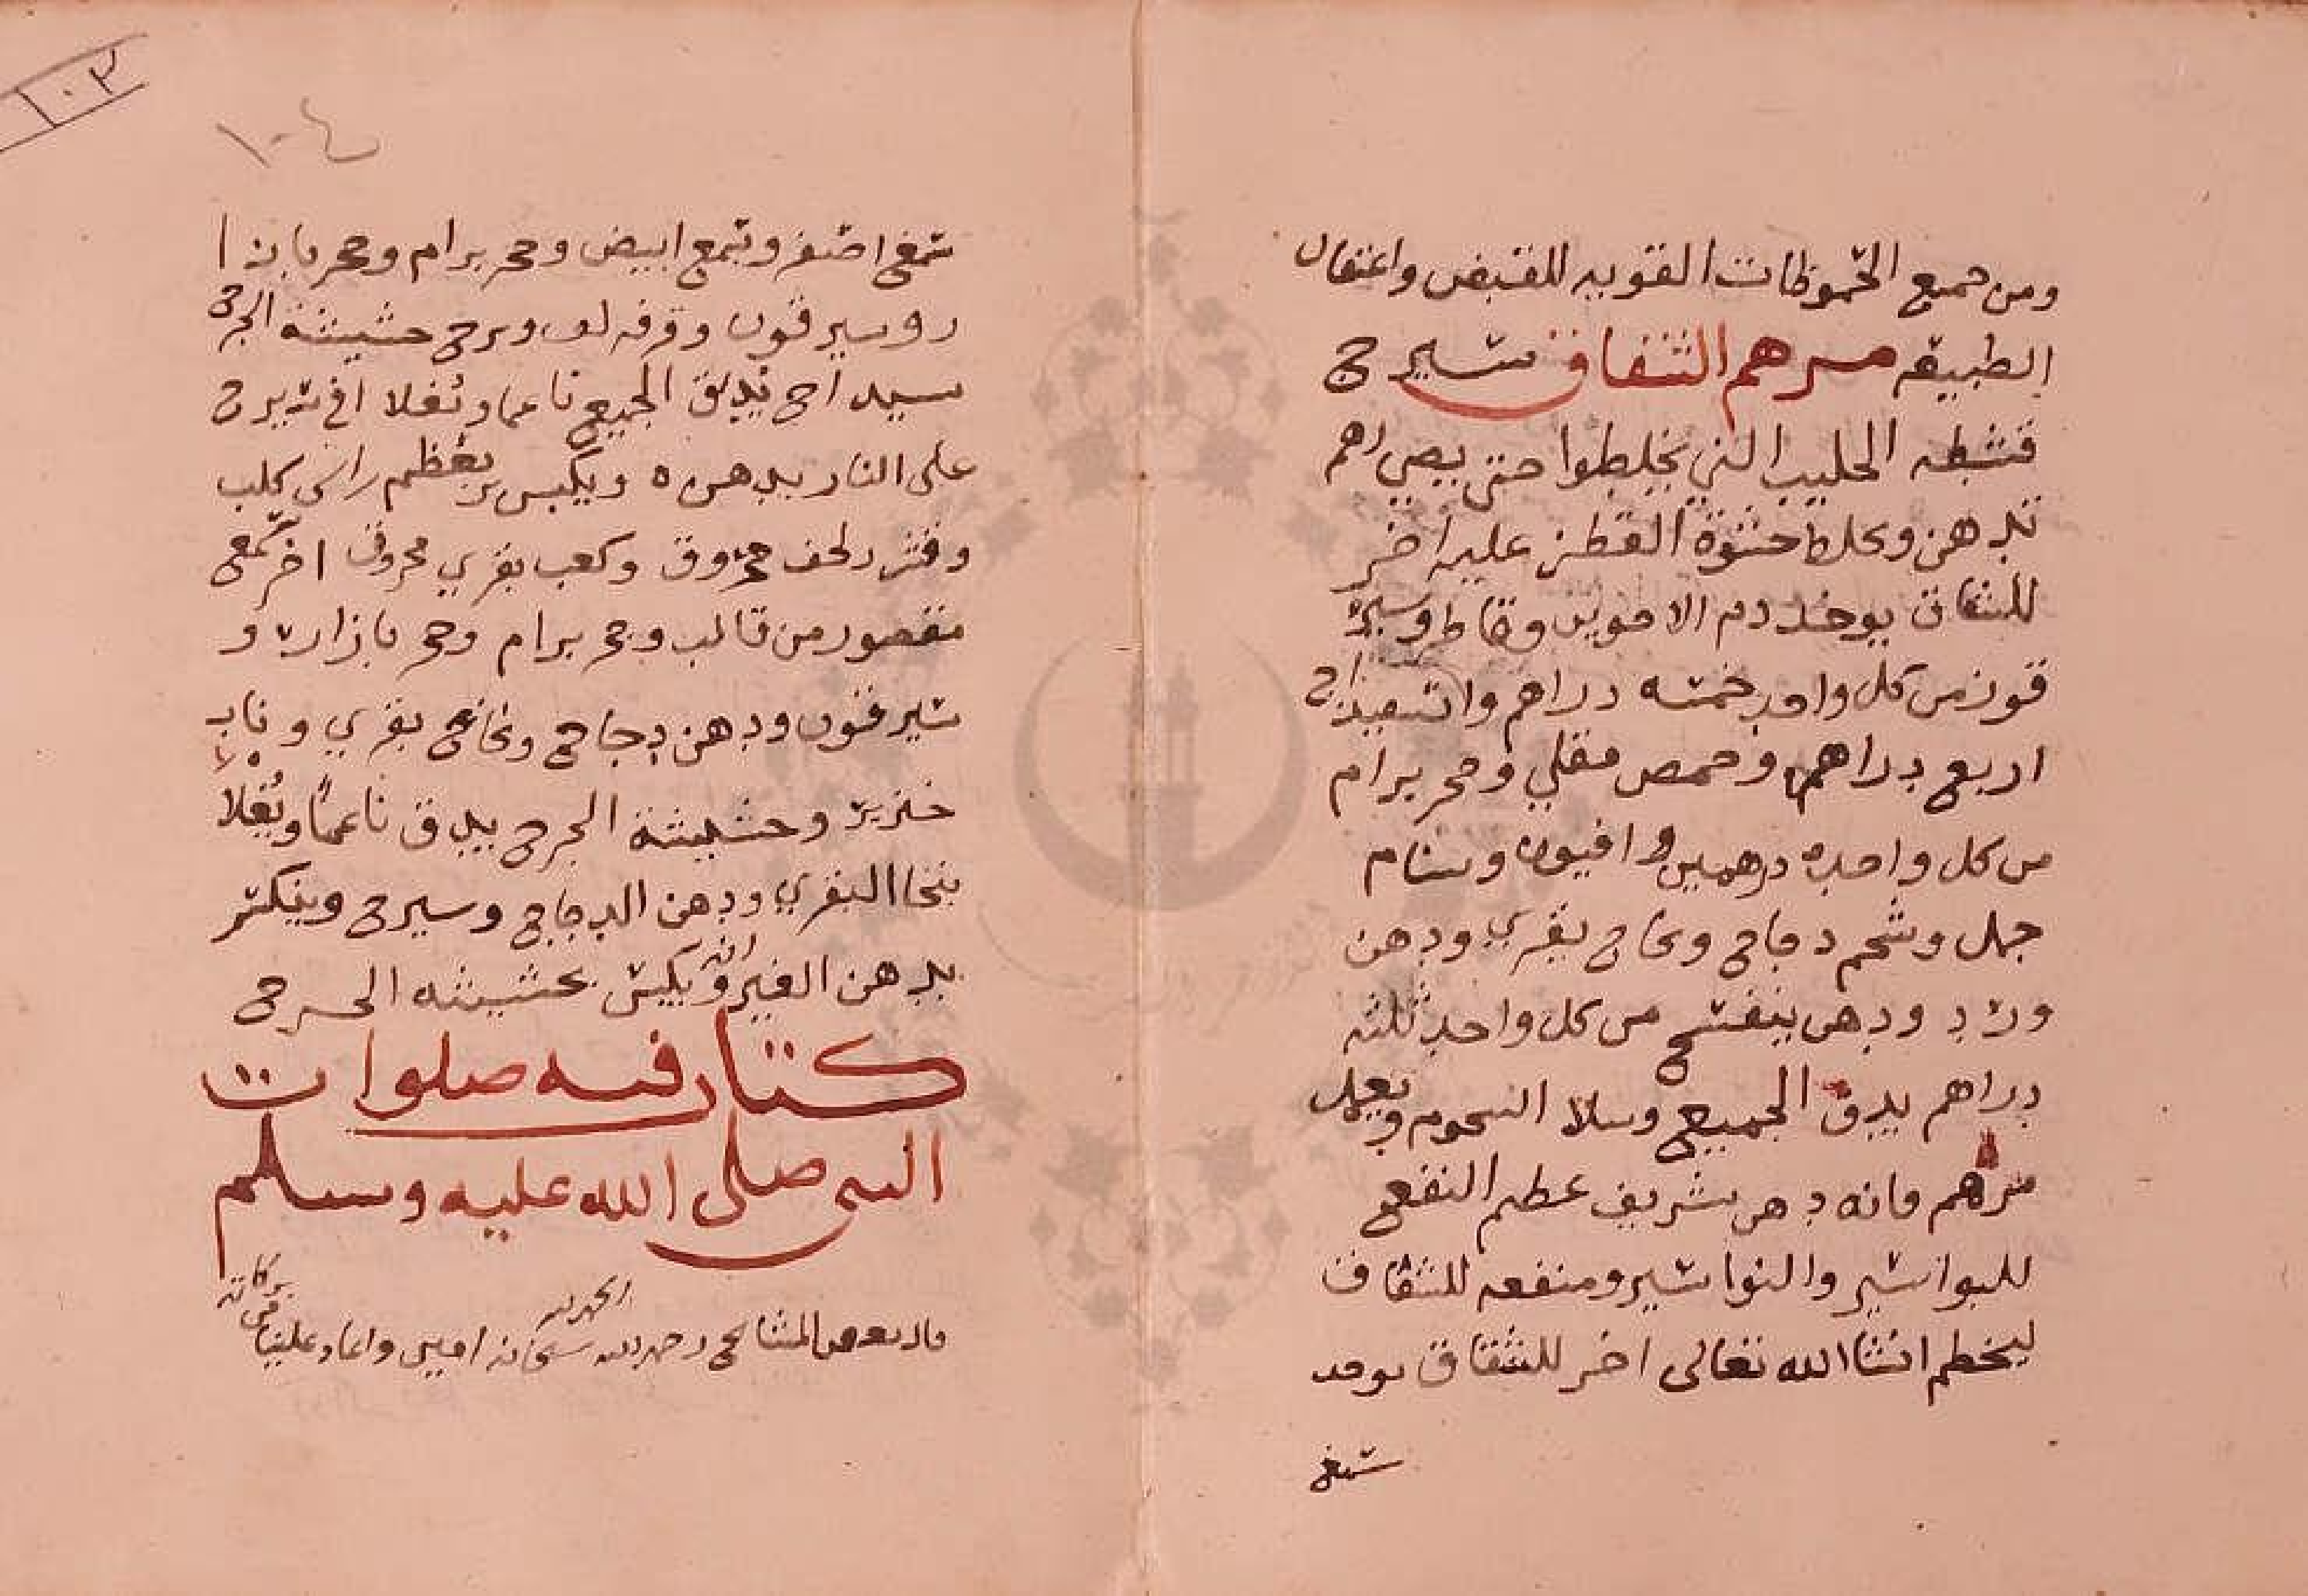 ومن جميع الحموظات القويه للقبض واعتقال
الطبيقه مرهم الشقاق شيرج
قشطه الحليب التي يخلطوا حتى يصير اهم
بدهن ويخلط حشوة القطن عليه اخر
للشقاق يوخد دم الاخوين وقاط وسير
قون من كل واحد خمسه دراهم واسفيداج
اربع دراهم وحمص مقلي وحجر برام
من كل واحده درهمين وافيون وسنام
جمل وشحم دجاج ونخاع بقري ودهن
ورد ودهن بنفسج من كل واحد ثلثه
دراهم يدق الجميع وسلا الشحوم ويعمل
مرهم فانه دهن شريف عظيم النفع
للبواشير والنواشير ومنفعه للشقاق
ليخطم انشا الله تعالى اخر للشقاق يوخد
شمع
شمع اصفر وشمع ابيض وحجر برام وحجر
روسيرقون وقرفه لف وبرج حشيشة الجرح
سيداج يدق الجميع ناعما وتغلا في شيرج
على النار بدهن ويكبس بعظم راس كلب
وقشر لحف محروق وكعب بقري محروق اخر شمع
مقصور من قالب وحجر برام وحجر بازار و
شيرقون ودهن دجاج ونخاع بقري وناب
خنزير وحشيشة الجرح يدق ناعما وتغلا
بنخا البقري ودهن الدجاج وسيرج وينكتر
بدهن الفيران ويكبس بحشيشه الجرح
كتاب فيه صلوات
النبي صلى الله عليه وسلم
قال بعض المشائخ رحمه الله سبحانه امين واعاد علينا من بركاته